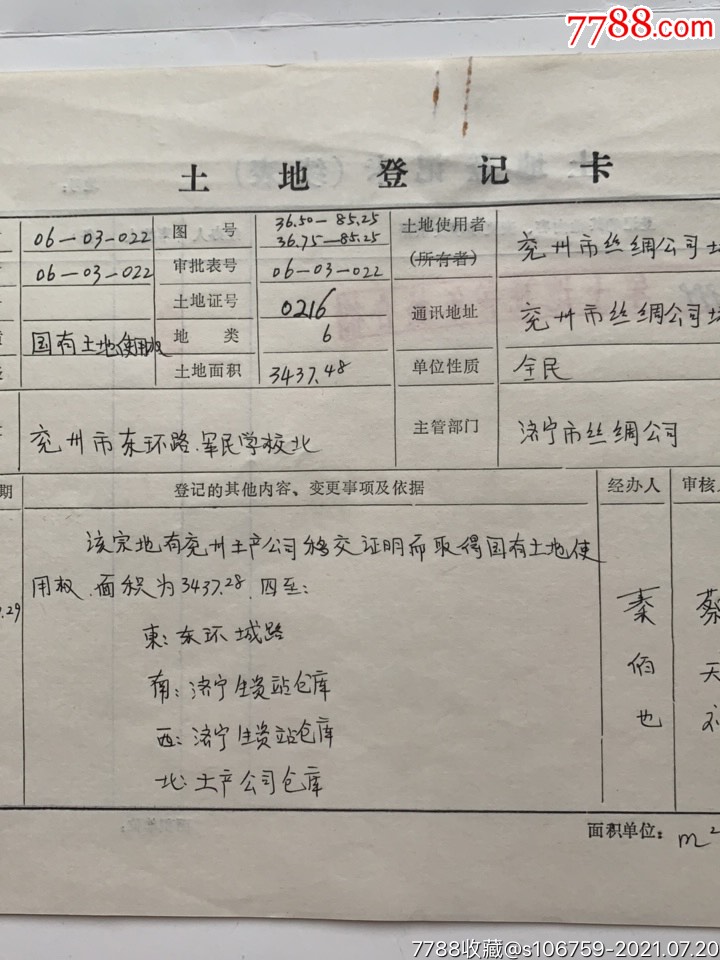 7788.com
土地登记卡
06—03—022 图号 36.50—85.25 土地使用者 兖州市丝绸公司
36.75—85.25
06—03—022 审批表号 06—03—022 (所有者)
土地证号 0216 通讯地址 兖州市丝绸公司
国有土地使用权 地类 6
土地面积 3437.48 单位性质 全民
兖州市东环路.军民学校北 主管部门 济宁市丝绸公司
期 登记的其他内容、变更事项及依据 经办人 审核
该宗地有兖州土产公司移交证明而取得国有土地使
用权.面积为3437.28.四至:
.29
東:东环城路
南:济宁生资站仓库
西:济宁生资站仓库
北:土产公司仓库
秦佰也
蔡天
面积单位: m²
7788收藏@s106759-2021.07.20